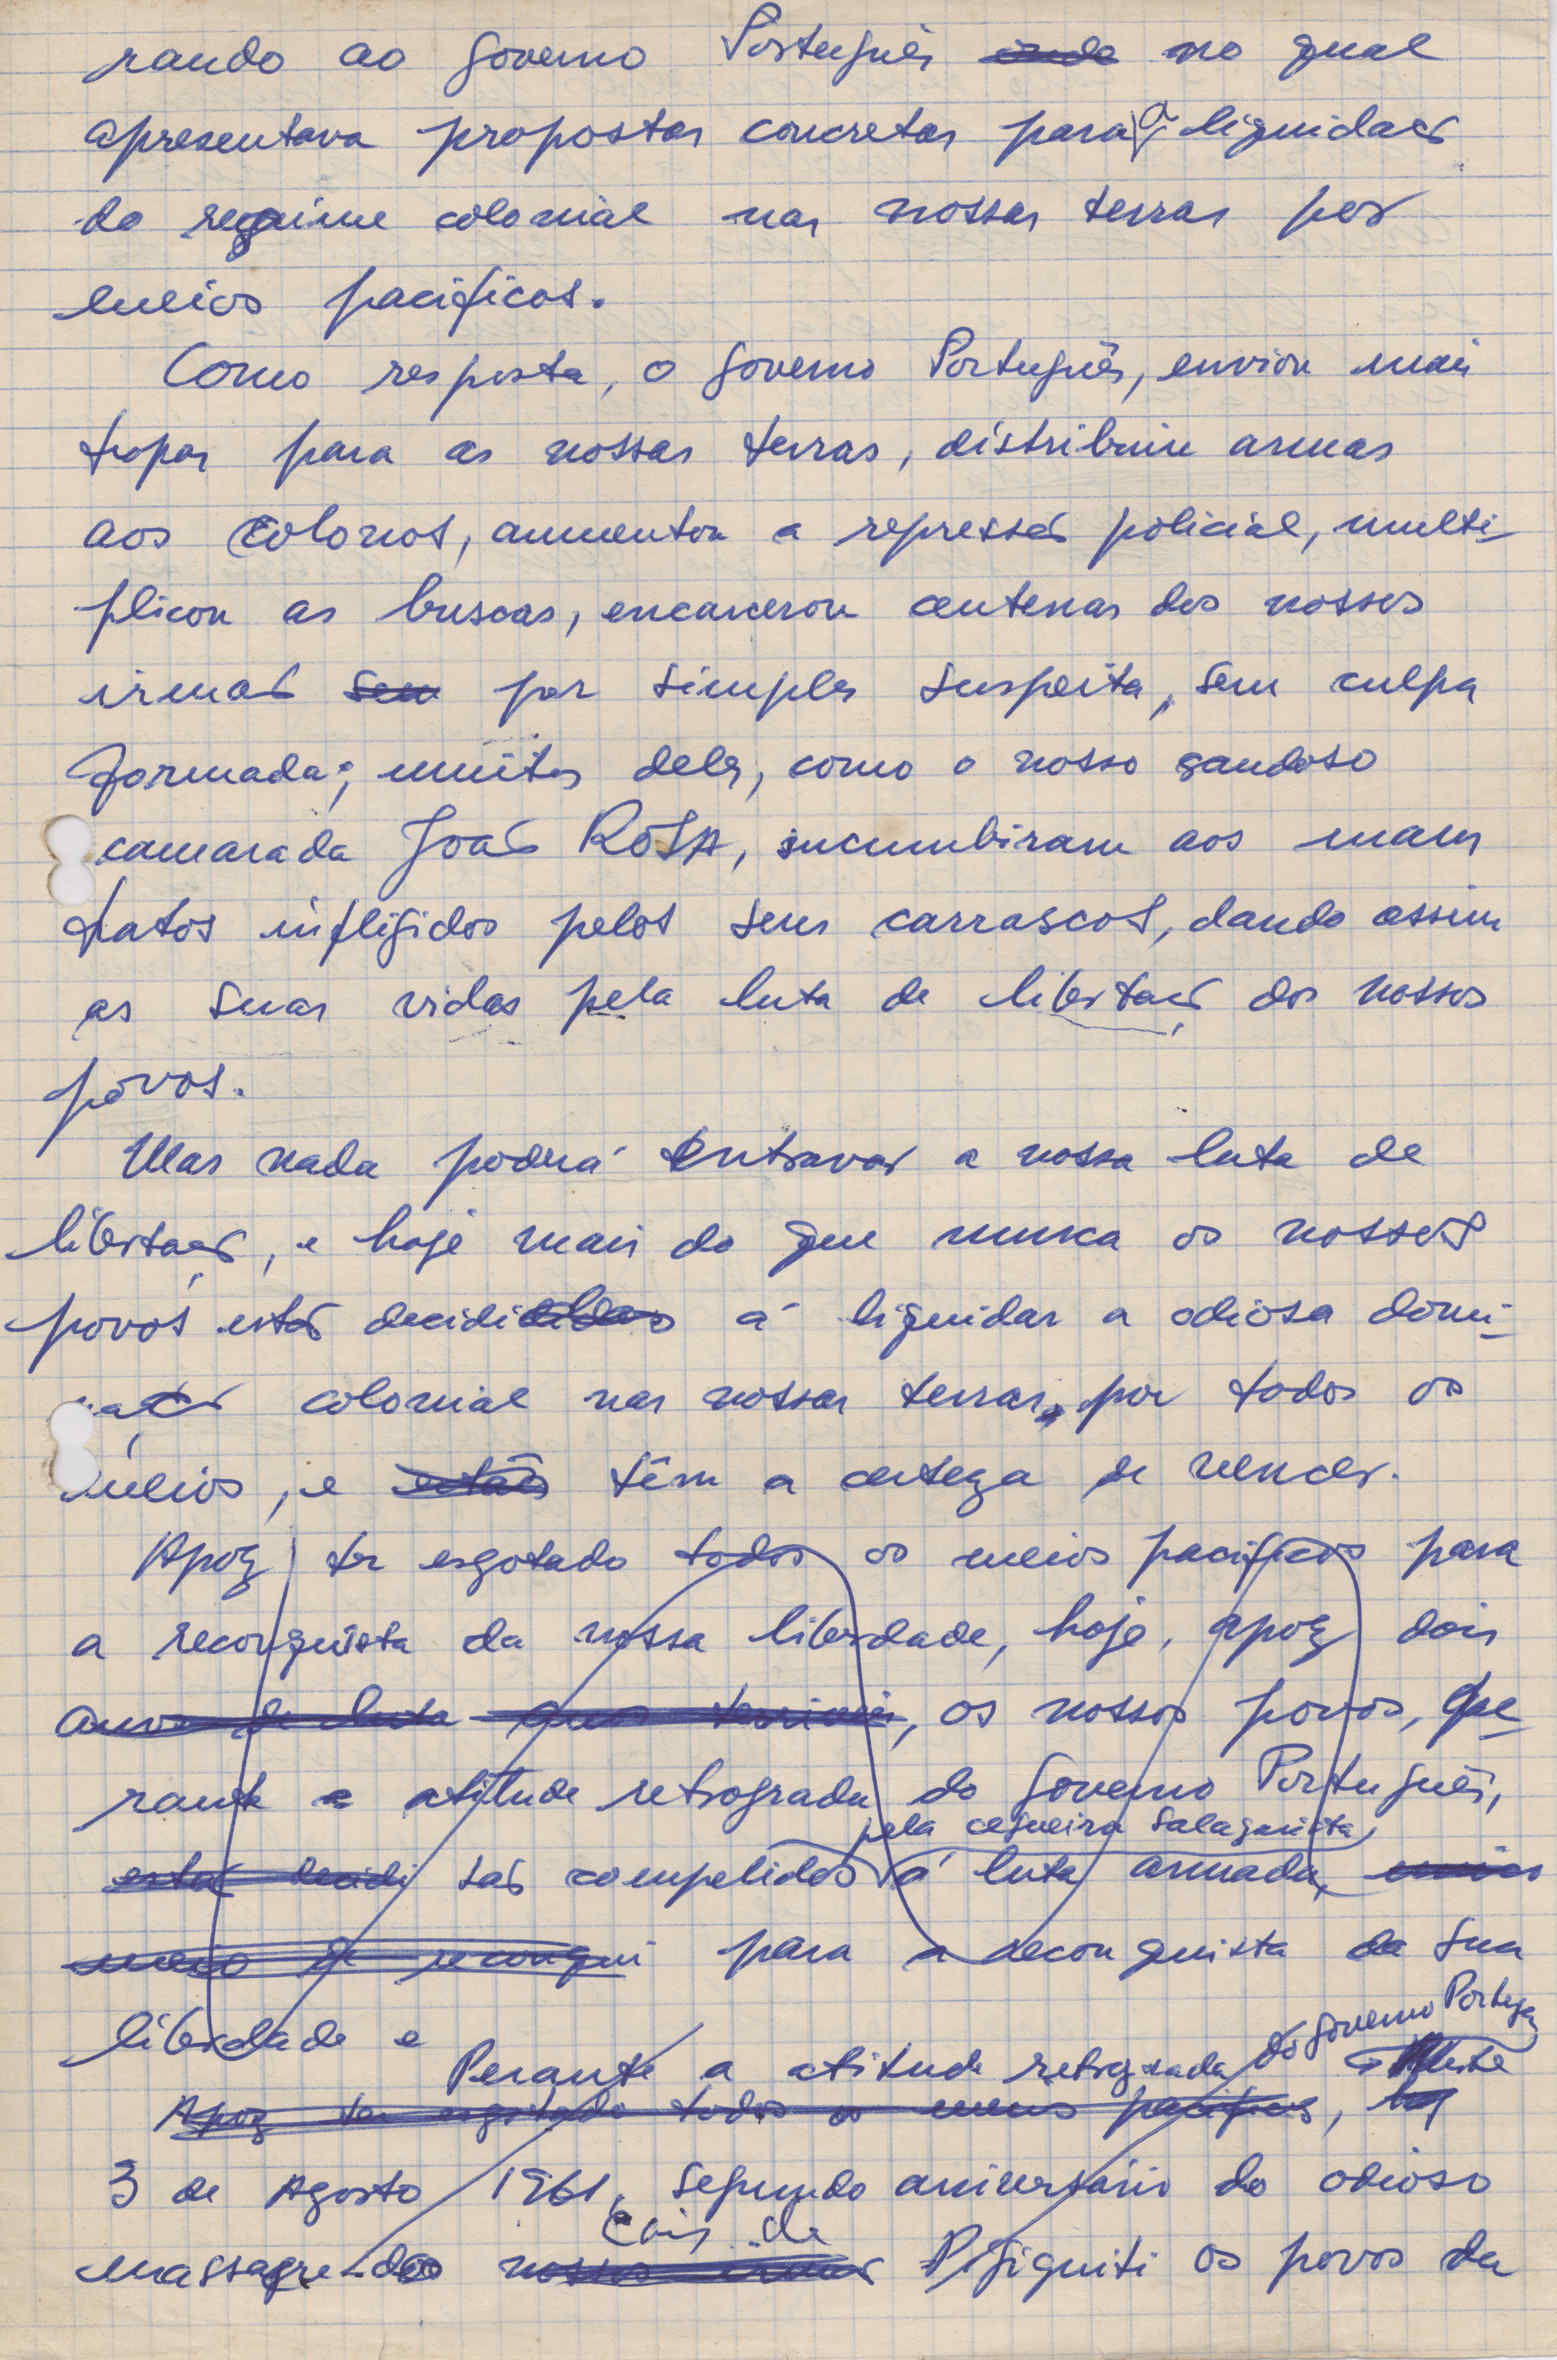 rando ao Governo Português onde no qual
apresentava propostas concretas para a liquidação
do regime colonial nas nossas terras por
meios pacificos.
Como resposta, o Governo Português, enviou mais
tropas para as nossas terras, distribuiu armas
aos colonos, aumentou a repressão policial, multi-
plicou as buscas, encarcerou centenas dos nossos
irmãos sem por simples suspeita, sem culpa
formada; muitos deles, como o nosso saudoso
camarada João ROSA, sucumbiram aos maus
tratos infligidos pelos seus carrascos, dando assim
as suas vidas pela luta de libertação dos nossos
povos.
Mas nada poderá entravar a nossa luta de
libertação, e hoje mais do que nunca os nossos
povos estão decididos á liquidar a odiosa domi-
nação colonial nas nossas terras, por todos os
meios, e estão têm a certeza de vencer.
Apoz ter esgotado todos os meios pacificos para
a reconquista da nossa liberdade, hoje, apoz dois
anos de luta, os nossos povos, pe-
rante a atitude retrograda do Governo Português,
pela cegueira Salazarista
estão decidi são compelidos á luta armada,
meio de reconqui para a reconquista da sua
liberdade e
do Governo Portugu
Perante a atitude retrograda
Apoz ter esgotado todos os meios pacificos,
3 de Agosto 1961, segundo aniversário do odioso
Cais de
massacre do nossos irmãos Pigiguiti os povos da